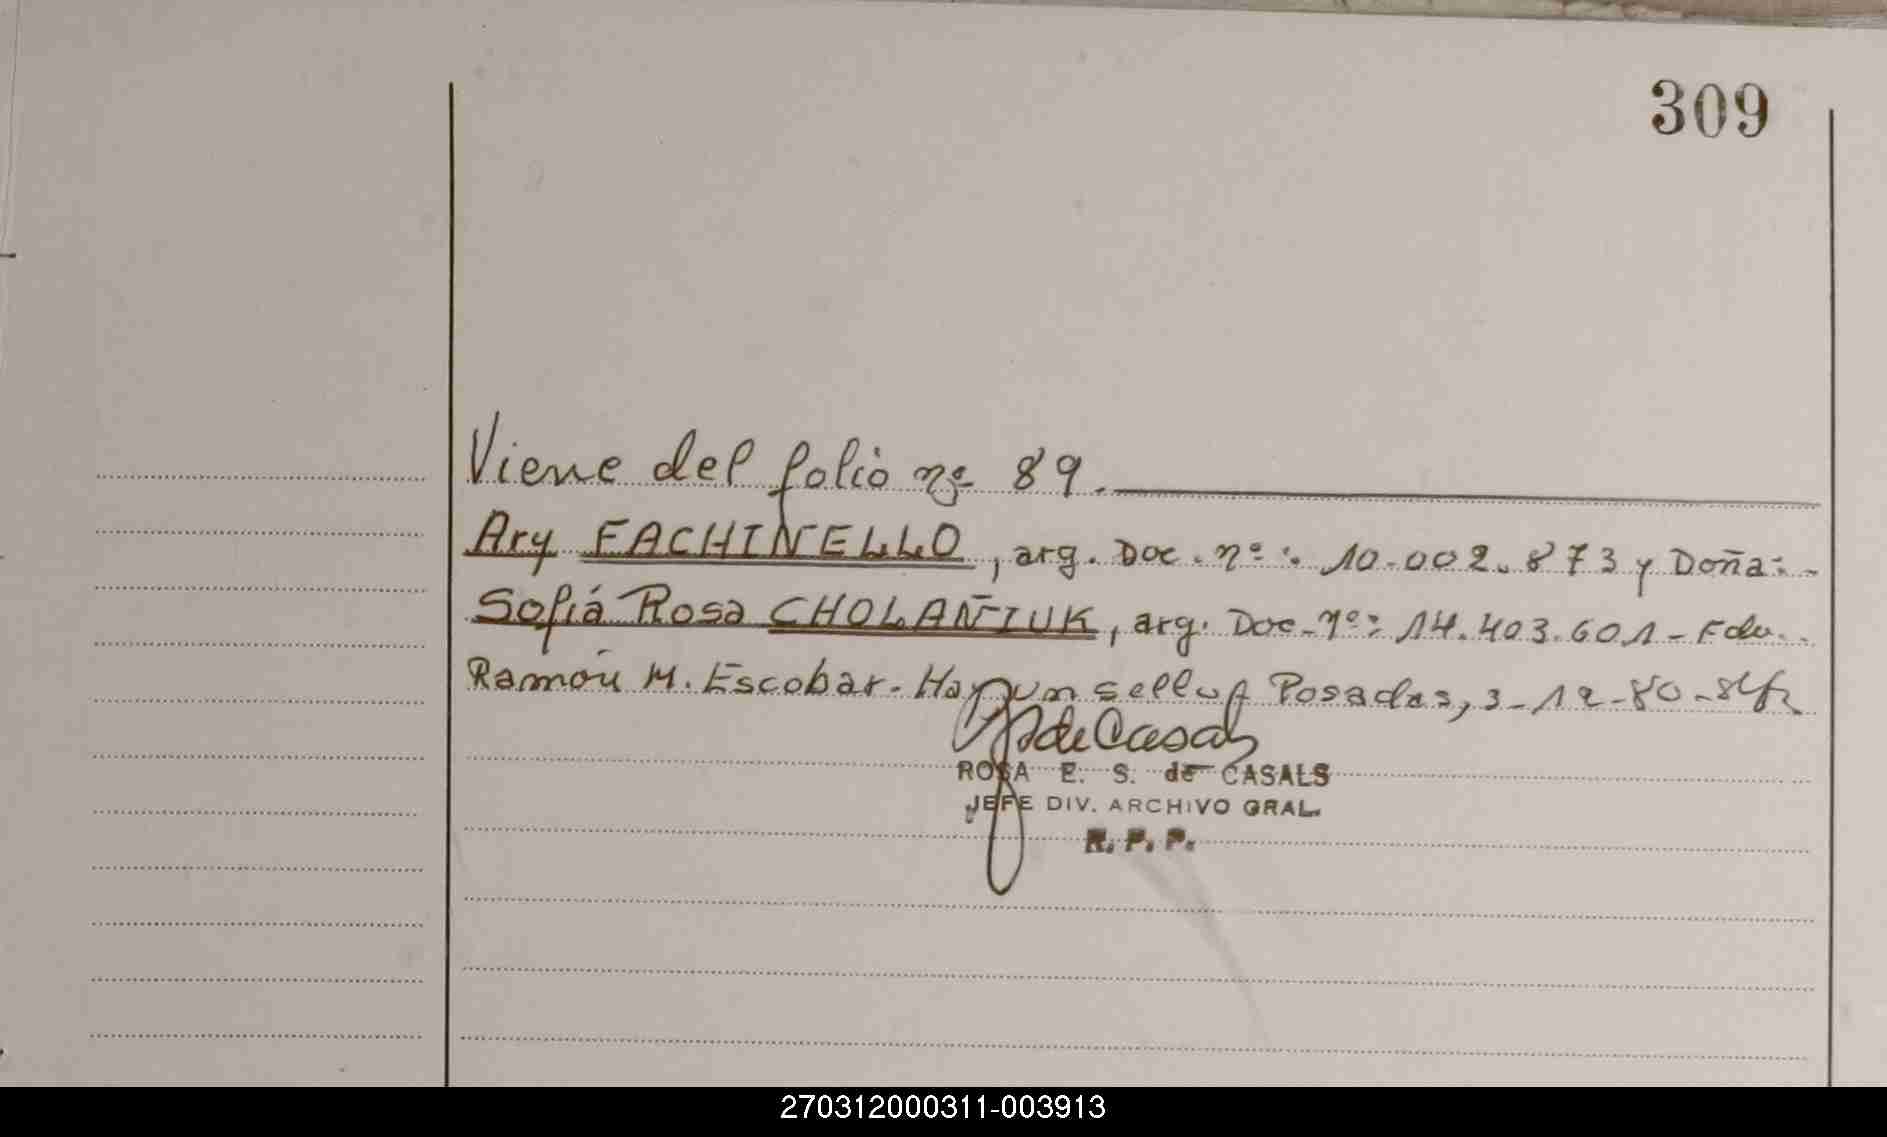 309
Viene del folio nº 89.
Ary FACHINELLO, arg. Doc. nº: 10.002.873 y Doña:-
Sofiá Rosa CHOLAÑIUK, arg. Doc. nº: 14.403.601 - Fdo.
Ramón M. Escobar - Hay un sello Posadas, 3-12-80-
de Casals
ROSA E. S. de CASALS
JEFE DIV. ARCHIVO GRAL.
R. P. P.
270312000311-003913